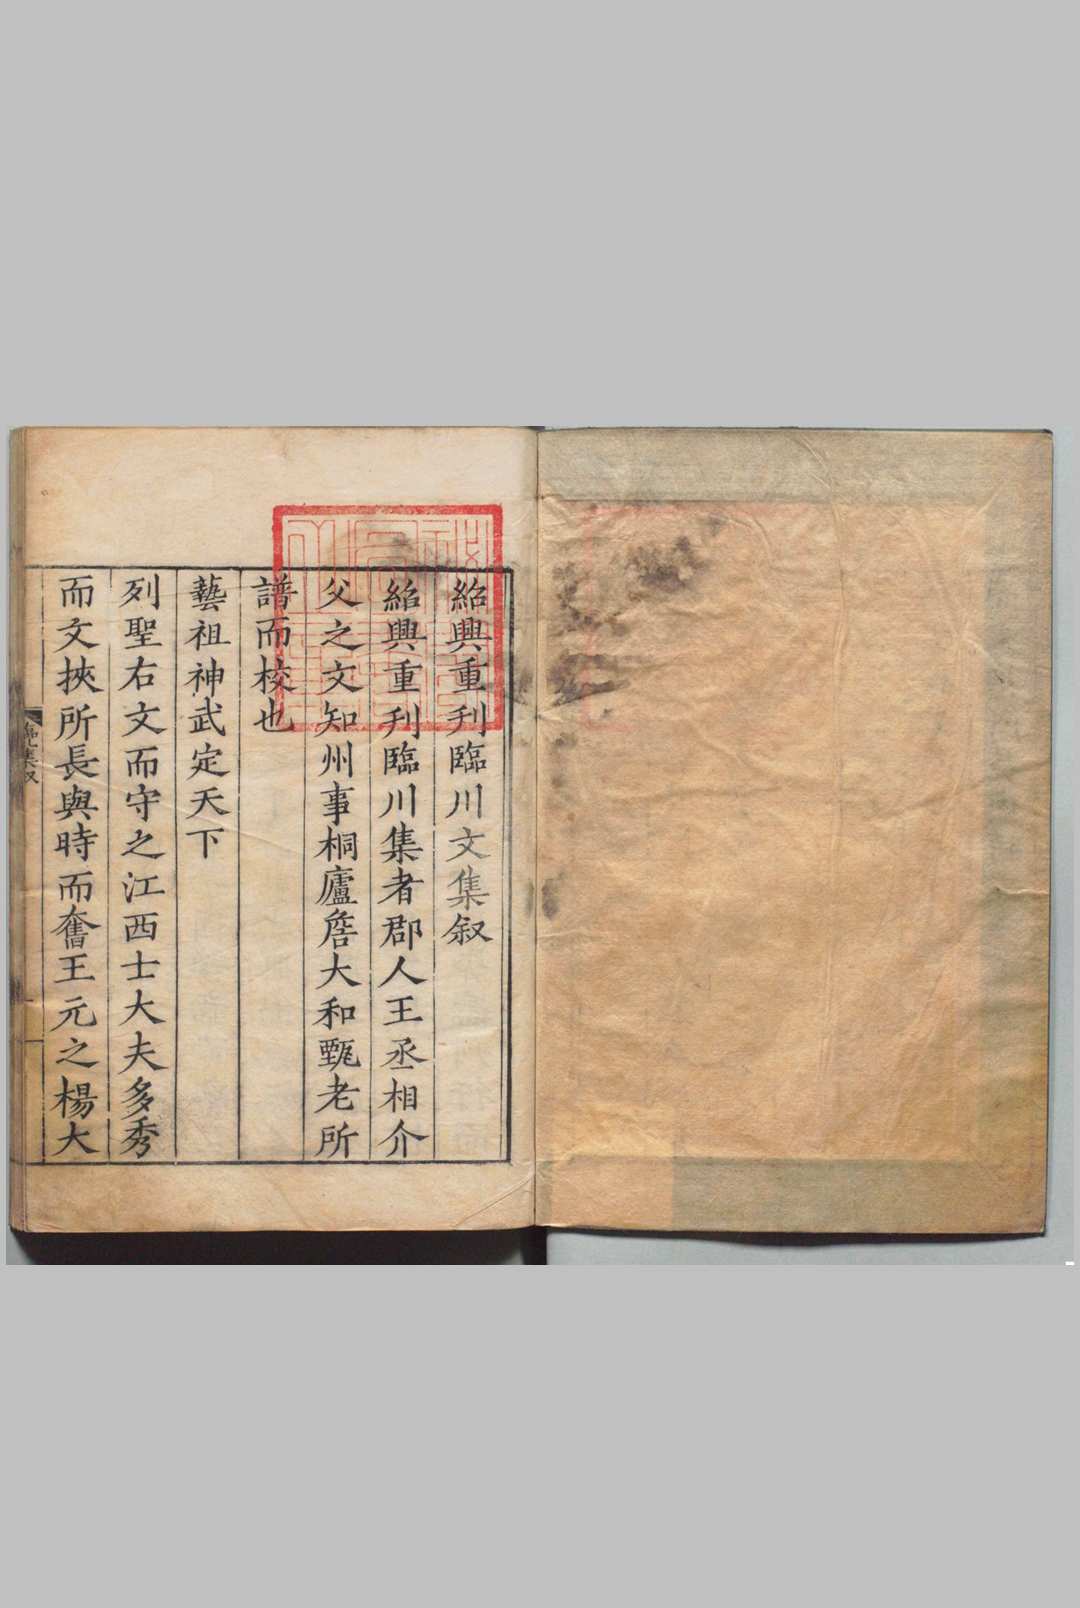 紹興重刋臨川文集叙
紹興重刋臨川集者郡人王丞相介
父之文知州事桐廬詹大和甄老所
譜而校也
藝祖神武定天下
列聖右文而守之江西士大夫多秀
而文挾所長與時而奮王元之楊大